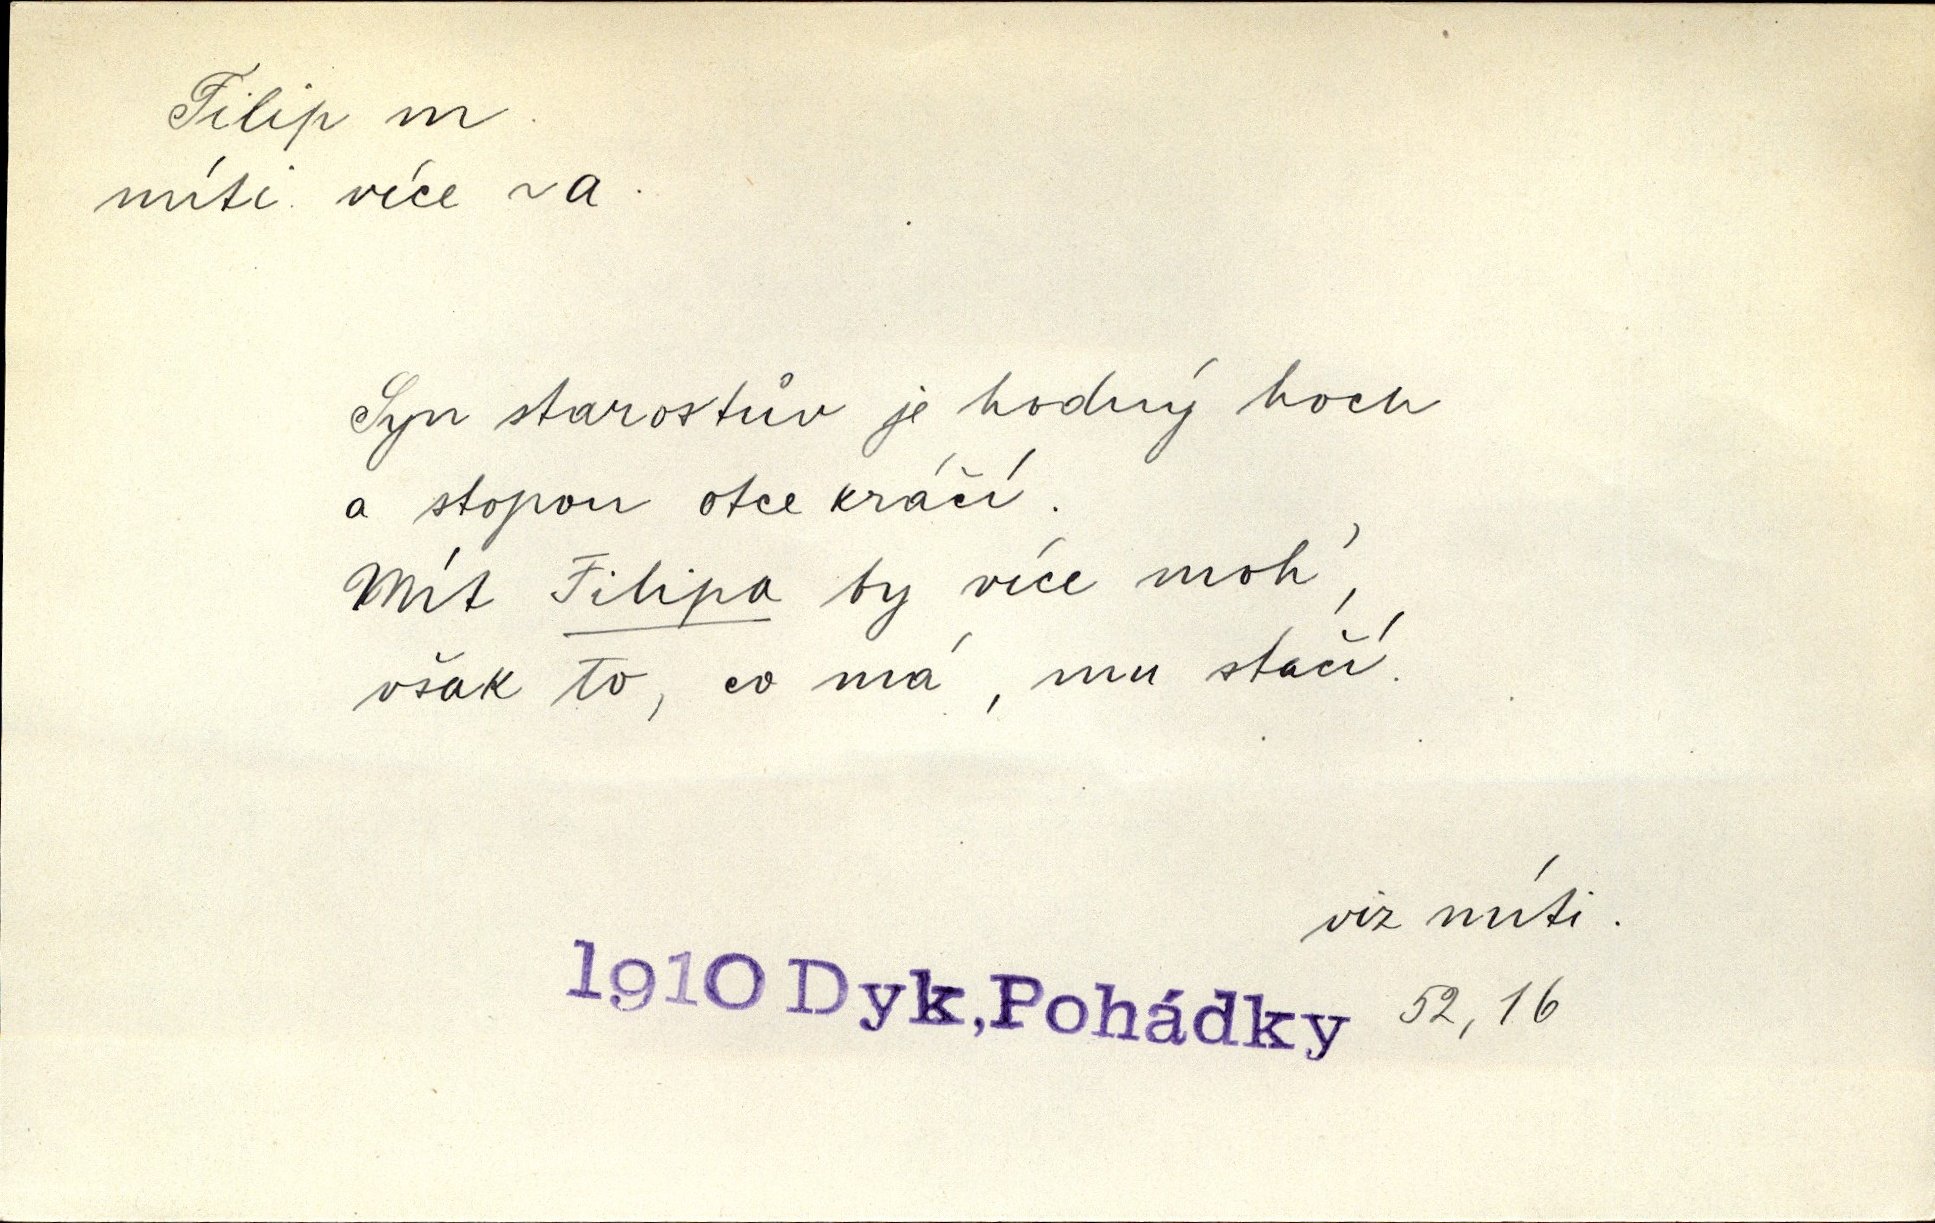 Filip m.
míti více ~a.
Syn starostův je hodný hoch
a stopou otce kráčí.
Mít Filipa by více moh',
však to, co má, mu stačí.
viz míti.
1910 Dyk, Pohádky 52, 16